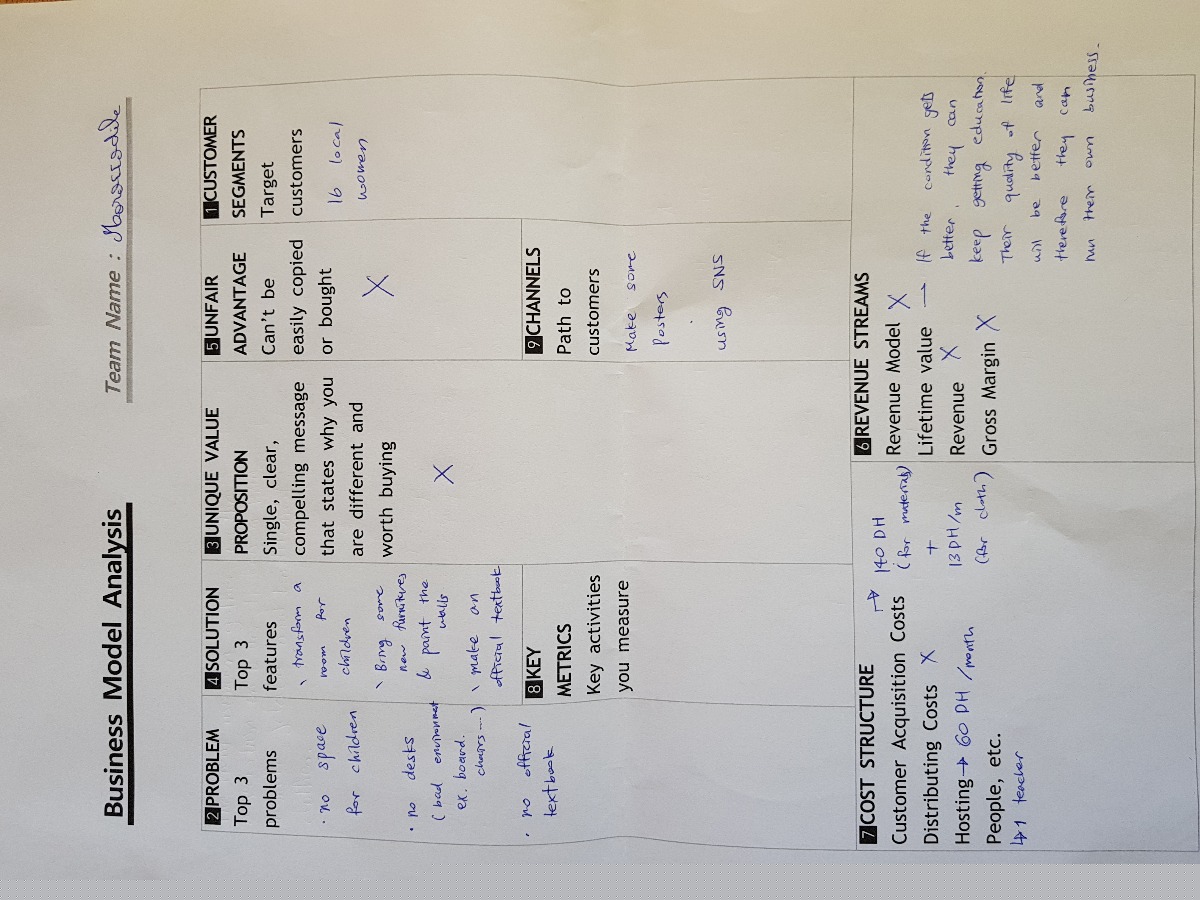 Business Model Analysis
Team Name :
2 PROBLEM
Top 3
problems
· no space
for children
· no desks
( bad environment
ex. board.
chairs ... )
· no official
textbook
4 SOLUTION
Top 3
features
\ transform a
room for
children
\ Bring some
new furnitures
& paint the
walls
\ make an
official textbook
8 KEY
METRICS
Key activities
you measure
3 UNIQUE VALUE
PROPOSITION
Single, clear,
compelling message
that states why you
are different and
worth buying
X
5 UNFAIR
ADVANTAGE
Can't be
easily copied
or bought
X
9 CHANNELS
Path to
customers
Make some
posters
using SNS
1 CUSTOMER
SEGMENTS
Target
customers
16 local
women
7 COST STRUCTURE
Customer Acquisition Costs → 140 DH
(for materials)
+
13 DH/m
(for cloth)
Distributing Costs X
Hosting → 60 DH /month
People, etc.
↳ 1 teacher
6 REVENUE STREAMS
Revenue Model X
Lifetime value → If the condition gets
better, they can
keep getting education.
Their quality of life
will be better and
therefore they can
run their own business.
Revenue X
Gross Margin X